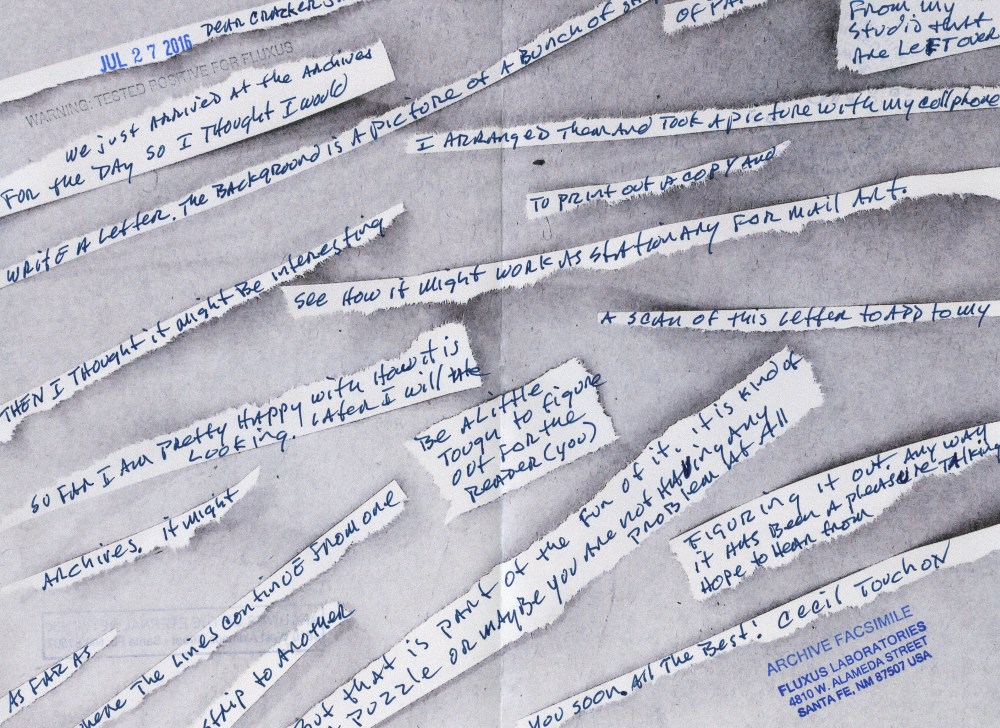 DEAR CRACKER
JUL 27 2016
WARNING: TESTED POSITIVE FOR FLUXUS
we just ARRIVED At the ARCHIVES
FOR the DAY so I THOUGHT I would
WRITE A LETTER. THE BACKGROUND IS A PICTURE OF A BUNCH OF
OF
FROM my
Studio that
ARE LEFT OVER
I ARRANGED them AND TOOK A PICTURE with my cellphone
TO PRINT OUT A COPY AND
SEE HOW it Might WORK AS STATIONARY FOR MAIL ART.
THEN I THOUGHT it might BE interesting
A SCAN OF this LETTER TO ADD TO MY
SO FAR I AM PRETTY HAPPY with HOW it is
LOOKING. LATER I will
ARCHIVES. it MIGHT
BE A Little
TOUGH to figure
OUT FOR the
READER (YOU)
AS FAR AS
where THE LINES CONTINUE FROM one
strip to ANOTHER
But that is PART of the FUN OF it. it is KIND of
PUZZLE OR MAYBE YOU ARE NOT HAVING ANY
PROBLEM AT All
FIGURING it OUT. ANY WAY
it HAS BEEN A PLEASURE TALKING
HOPE to HEAR from
YOU SOON. All THE BEST! CECIL TOUCHON
ARCHIVE FACSIMILE
FLUXUS LABORATORIES
4810 W. ALAMEDA STREET
SANTA FE, NM 87507 USA